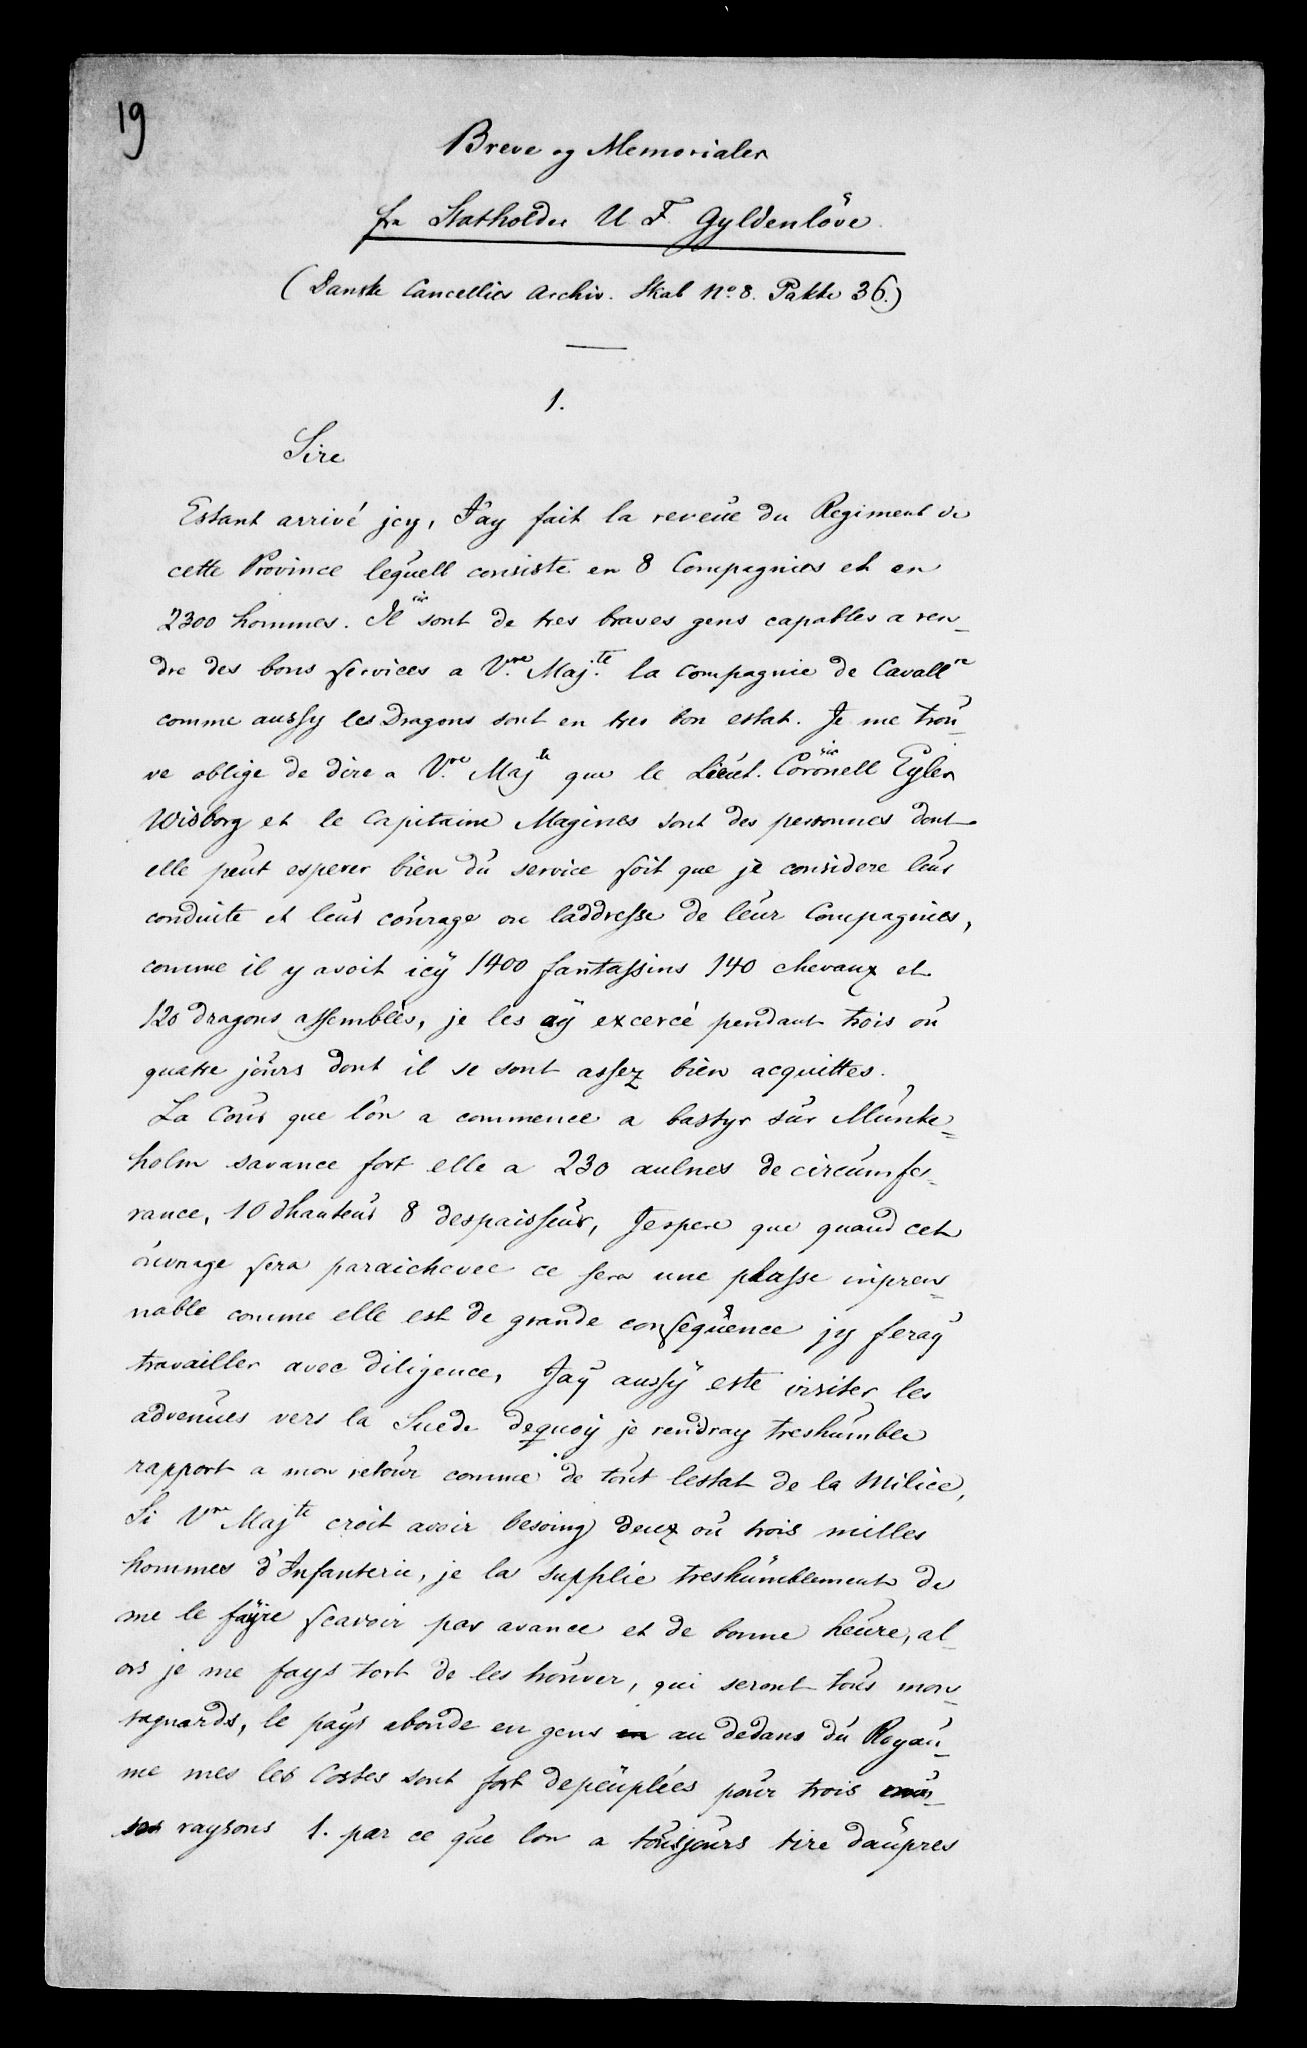 19
Breve og Memorialer
fra Statholder U F. Gyldenlöve.
(Danske Cancellies Archiv. Skab No. 8. Pakke 36.)
1.
Sire
Estant arrivé jcy, J'ay fait la reveüe du Regiment de
cette Province lequell consiste en 8 Compagnies et en
2300 hommes. Il sic sont de tres braves gens capables a ren-
dre des bons services a V.re Maj.te la Compagnie de Cavallre
comme aussy les Dragons sont en tres bon estat. Je me trou-
ve oblige de dire a V.re Majte que le Lieut. Coronell sic Eyler
Wisborg et le Capitaine Magines sont des personnes dont
elle peut esperer bien du service soit que je considere leur
conduite et leur courage ou laddresse de leur Compagnies,
comme il y avoit icÿ 1400 fantassins 140 chevaux et
120 dragons assemblés, je les aÿ excercé pendant trois ou
quatre jours dont il se sont assez bien acquittes.
La Cour que lon a commence a bastyr sur Munke=
holm savance fort elle a 230 aulnes de circumfe-
rance, 10 dhauteur 8 despaisseur, Jespere que quand cet
ouvrage sera paraichevee ce sera une plasse inpren-
nable comme elle est de grande consequence jy feraÿ
travailler avec diligence, Jaÿ aussÿ este visiter les
advenues vers la Suede dequoÿ je rendray treshumble
rapport a mon retour comme de tout lestat de la Milice,
Si Vre Majte croit avoir besoing deux ou trois milles
hommes d'Infanterie, je la supplie treshumblement de
me le faÿre scavoir par avance et de bonne heure, al-
ors je me fays fort de les trouver, qui seront tous mon-
tagnards, le pays abonde en gens en au dedans du Royau-
me mes les Costes sont fort depeuplées pour trois
raysons 1. par ce que lon a tousjours tire daupres